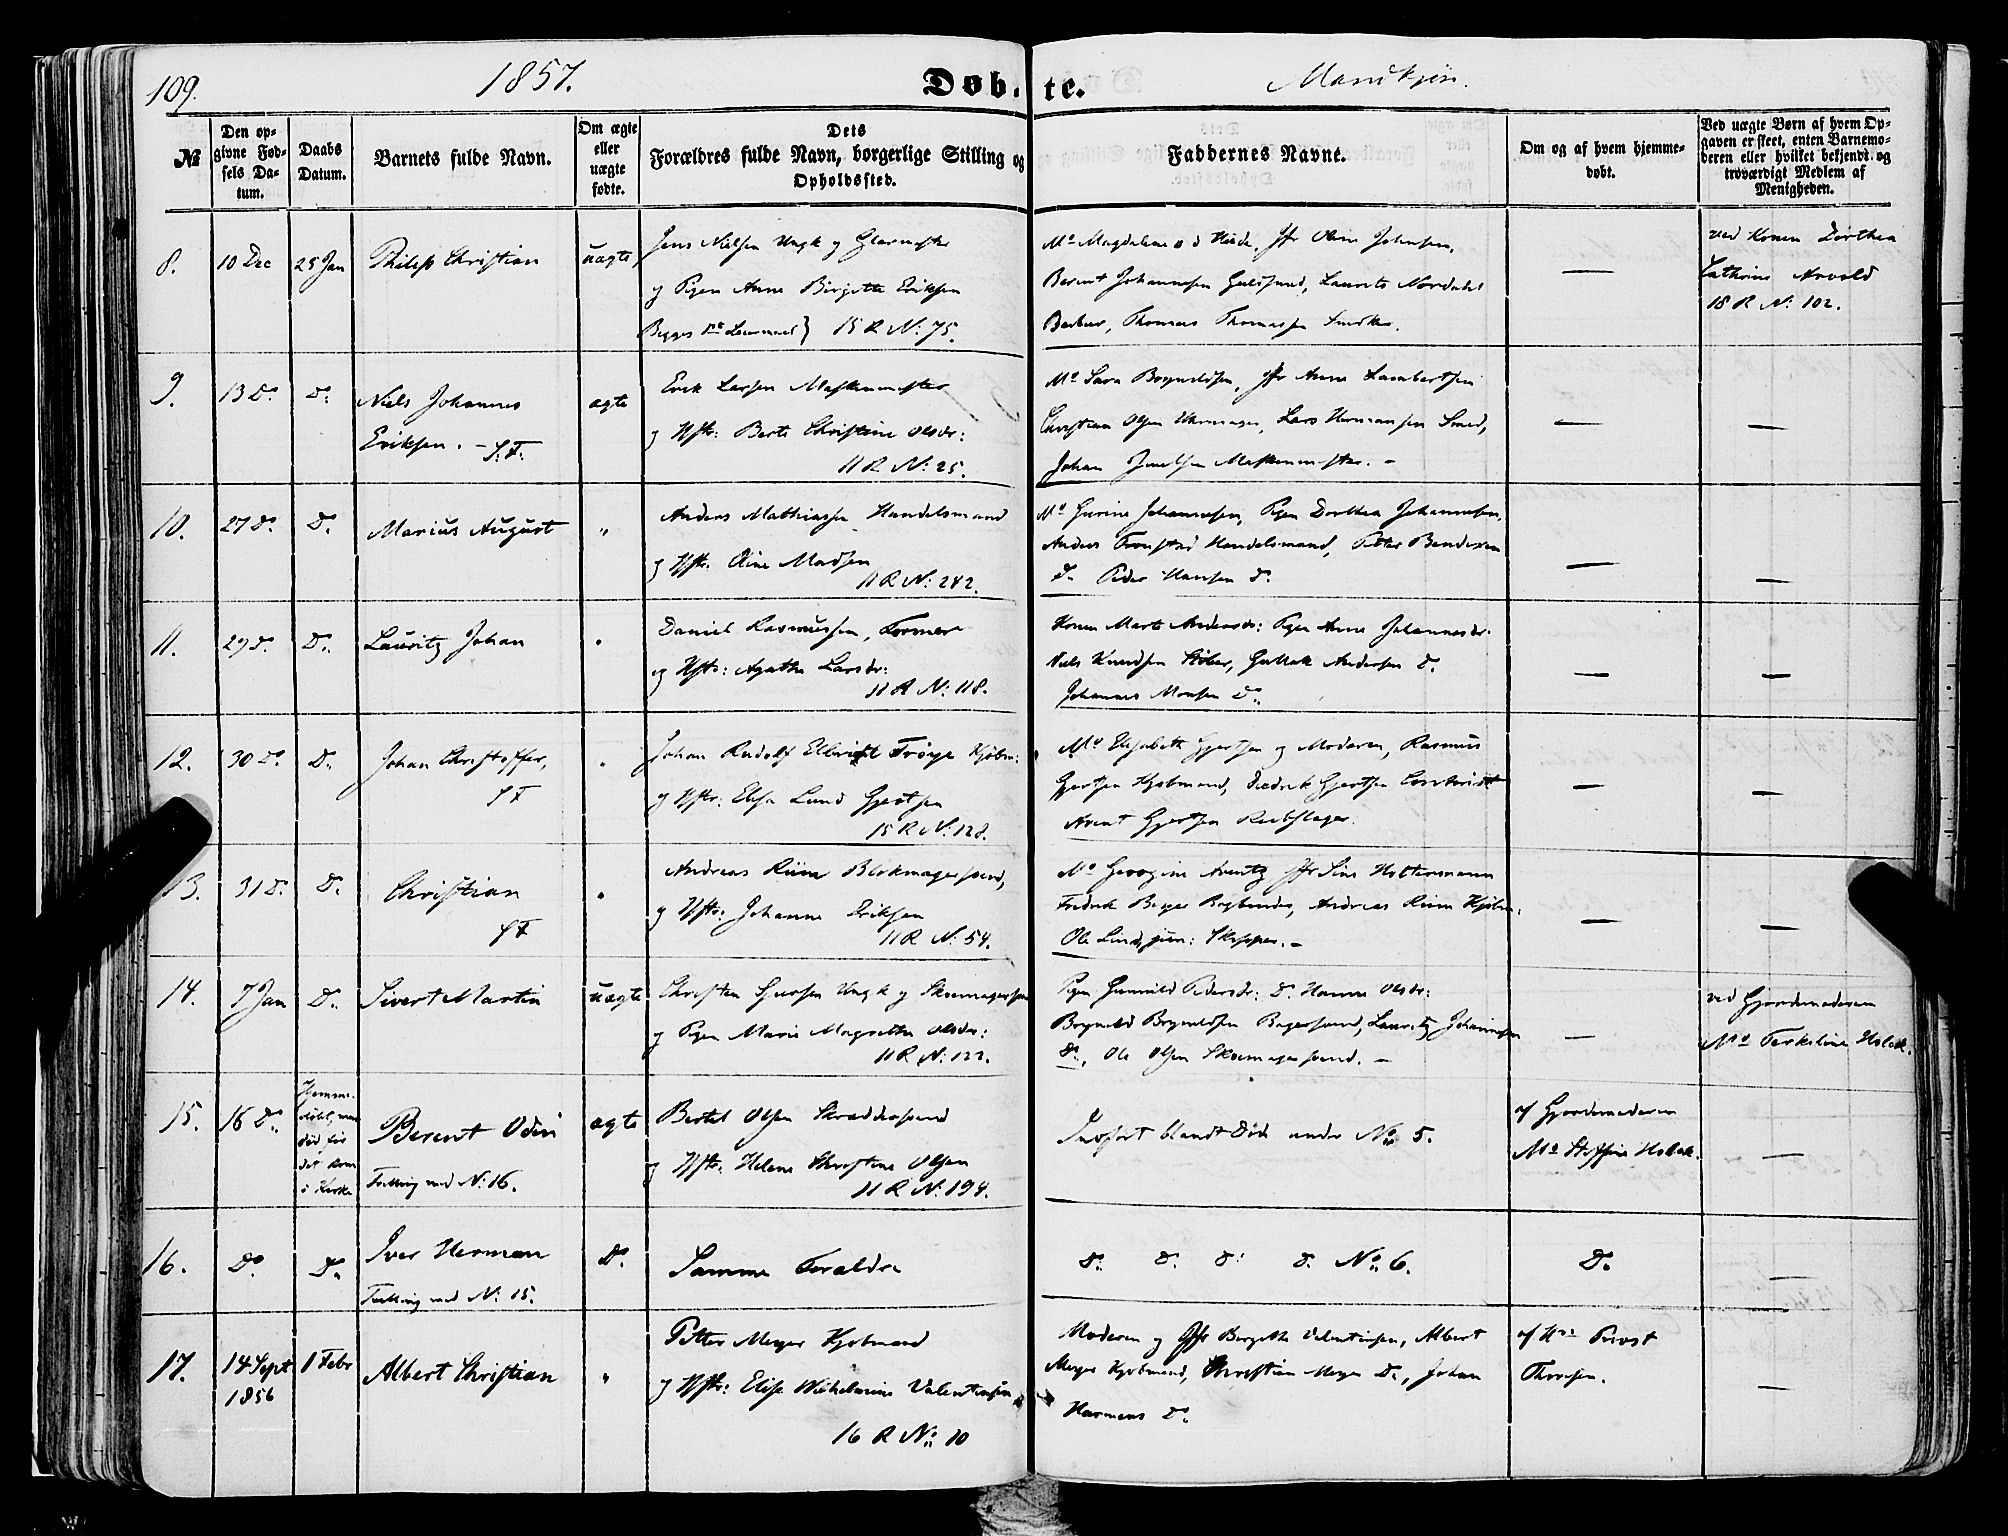 109.
1857.
Døbte.
Mandkjøn.
№
Den op-
givne Fød-
sels Da-
tum.
Daabs
Datum.
Barnets fulde Navn.
Om ægte
eller
uægte
fødte.
Dets
Forældres fulde Navn, borgerlige Stilling og
Opholdssted.
Faddernes Navne.
Om og af hvem hjemme-
døbt.
Ved uægte Børn af hvem Op-
gaven er skeet, enten Barnemo-
deren eller hvilket bekjendt og
troværdigt Medlem af
Menigheden.
8.
10 Dec
25 Jan
Philip Christian
uægte
Jens Nielsen Ungk og Glarmester
og Pigen Anne Birgitte Eriksen
Begges 15 R N: 75.
Md Magdalene v d Heide, Jfr Oline Johnsen,
Berent Johannesen, Laurits Nordahl
Barber, Thomas Thomassen
—
ved Konen Dorthea
Cathrine Arvold
18 R N: 102.
9.
13 Do
Do
Niels Johannes
Eriksen. –
ægte
Erik Larsen Maskinmester
og Hstr: Berte Christine Olsdr:
11 R N: 25.
Md Sara Bryneldsen, Jfr Anne Lambertsen
Christian Olsen Uhrmager, Lars Hermansen Smed,
Johan Maskinmester. –
—
—
10.
27 Do
Do
Marius August
"
Anders Mathiassen Handelsmand
og Hstr: Oline Madsen
11 R N: 242.
Md Gurine Johannesen, Pigen Dorthea Johannesen,
Anders Handelsmand, Peter Bendixen
Do Peder Hansen Do
—
—
11.
29 Do
Do
Lauritz Johan
"
Daniel Rasmussen, Former
og Hstr: Agathe Larsdr:
11 R N: 118.
Konen Marte Andersdr: Pigen Anne Johannesdr.
Niels Knudsen Støber, Gullak Andersen Do
Johannes Monsen Do
—
—
12.
30 Do
Do
Johan Christoffer,
"
Johan Rudolf Trøye Kjøbm:
og Hstr: Elise Lund Gjertsen
15 R N: 128.
Md Elisabeth Gjertsen og Moderen, Rasmus
Gjertsen Kjøbmand, Diedrik Gjertsen
Arent Gjertsen Rebslager.
—
—
13.
31 Do
Do
Christian
"
Andreas Riim Blokmagersvend,
og Hstr: Johanne Eriksen
11 R N: 54.
Md Georgine Arentz Jfr Sine Holtermann
Fredrik Beyer Bogbinder, Andreas Riim Kjøbm.
Ole Lind, jun: Skipper. –
—
—
14.
7 Jan
Do
Sivert Martin
uægte
Christen Sjursen Ungk og Skomagersvend
og Pigen Marie Magrethe Olsdr:
11 R N: 122.
Pigen Gunnild Pedersdr: Do Hanne Olsdr:
Bryneld Bryneldsen Bagersvend, Lauritz Johannesen
Do, Ole Olsen Skomagersvend. –
—
ved Gjordemoderen
Md Terkeline Holck.
15.
16 Do
Hjemme-
døbt, men
død før
det kom
i Kirke
Berent Odin
Tvilling med N: 16.
ægte
Bertel Olsen Skræddersvend
og Hstr: Helene Christine Olsen
11 R N: 194.
Indført blandt Døde under No 5.
af Gjordemoderen
Md Holck.
—
16.
Do
Do
Iver Herman
Tvilling med N: 15.
Do
Samme Forældre
Do Do Do Do No 6.
Do
—
17.
14 Sept
1856
1 Febr
Albert Christian
"
Petter Meyer Kjøbmand
og Hstr: Elise Wilhelmine Valentinsen
16 R No 10
Moderen og Jfr Birgitte Valentinsen, Albert
Meyer Kjøbmand, Christian Meyer Do, Johan
Harmens Do
af Hr Provst
Thorsen.
—